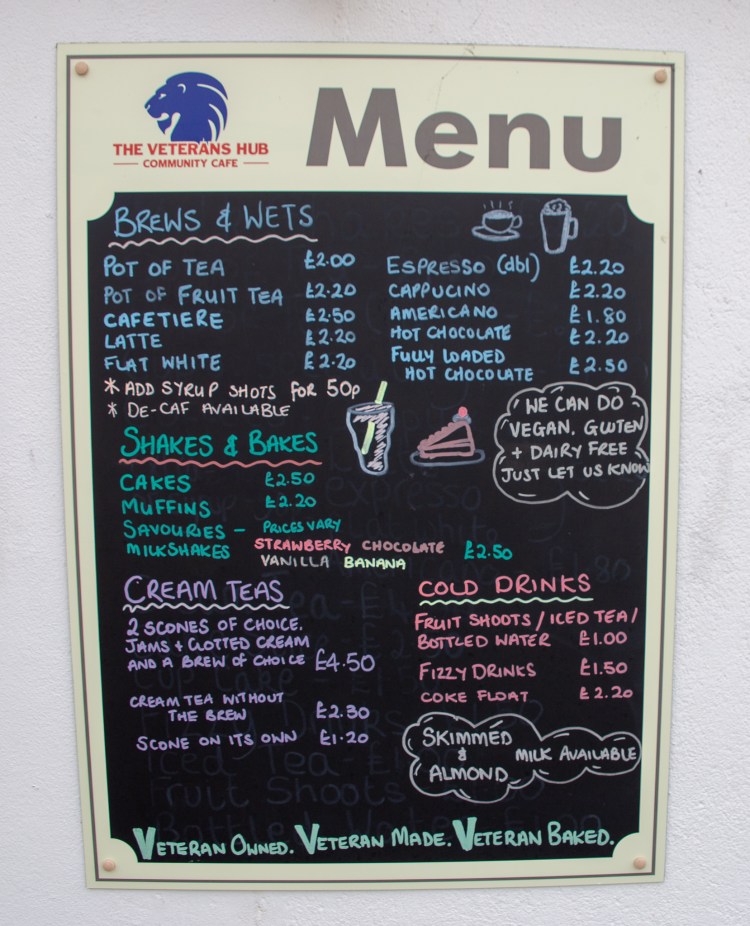 THE VETERANS HUB
COMMUNITY CAFE
Menu
BREWS & WETS
POT OF TEA £2.00
POT OF FRUIT TEA £2.20
CAFETIERE £2.50
LATTE £2.20
FLAT WHITE £2.20
* ADD SYRUP SHOTS FOR 50p
* DE-CAF AVAILABLE
ESPRESSO (dbl) £2.20
CAPPUCINO £2.20
AMERICANO £1.80
HOT CHOCOLATE £2.20
FULLY LOADED
HOT CHOCOLATE £2.50
WE CAN DO
VEGAN, GLUTEN
+ DAIRY FREE
JUST LET US KNOW
SHAKES & BAKES
CAKES £2.50
MUFFINS £2.20
SAVOURIES - PRICES VARY
MILKSHAKES STRAWBERRY CHOCOLATE £2.50
VANILLA BANANA
CREAM TEAS
2 SCONES OF CHOICE.
JAMS + CLOTTED CREAM
AND A BREW OF CHOICE £4.50
CREAM TEA WITHOUT
THE BREW £2.30
SCONE ON ITS OWN £1.20
COLD DRINKS
FRUIT SHOOTS / ICED TEA /
BOTTLED WATER £1.00
FIZZY DRINKS £1.50
COKE FLOAT £2.20
SKIMMED
& MILK AVAILABLE
ALMOND
Iced Tea
Fruit Shoots
VETERAN OWNED. VETERAN MADE. VETERAN BAKED.